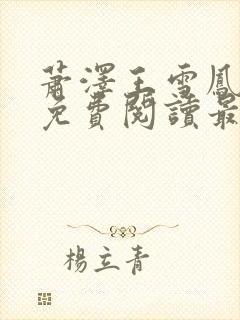 蕭澤王雪鳳
免費閱讀最
楊立青